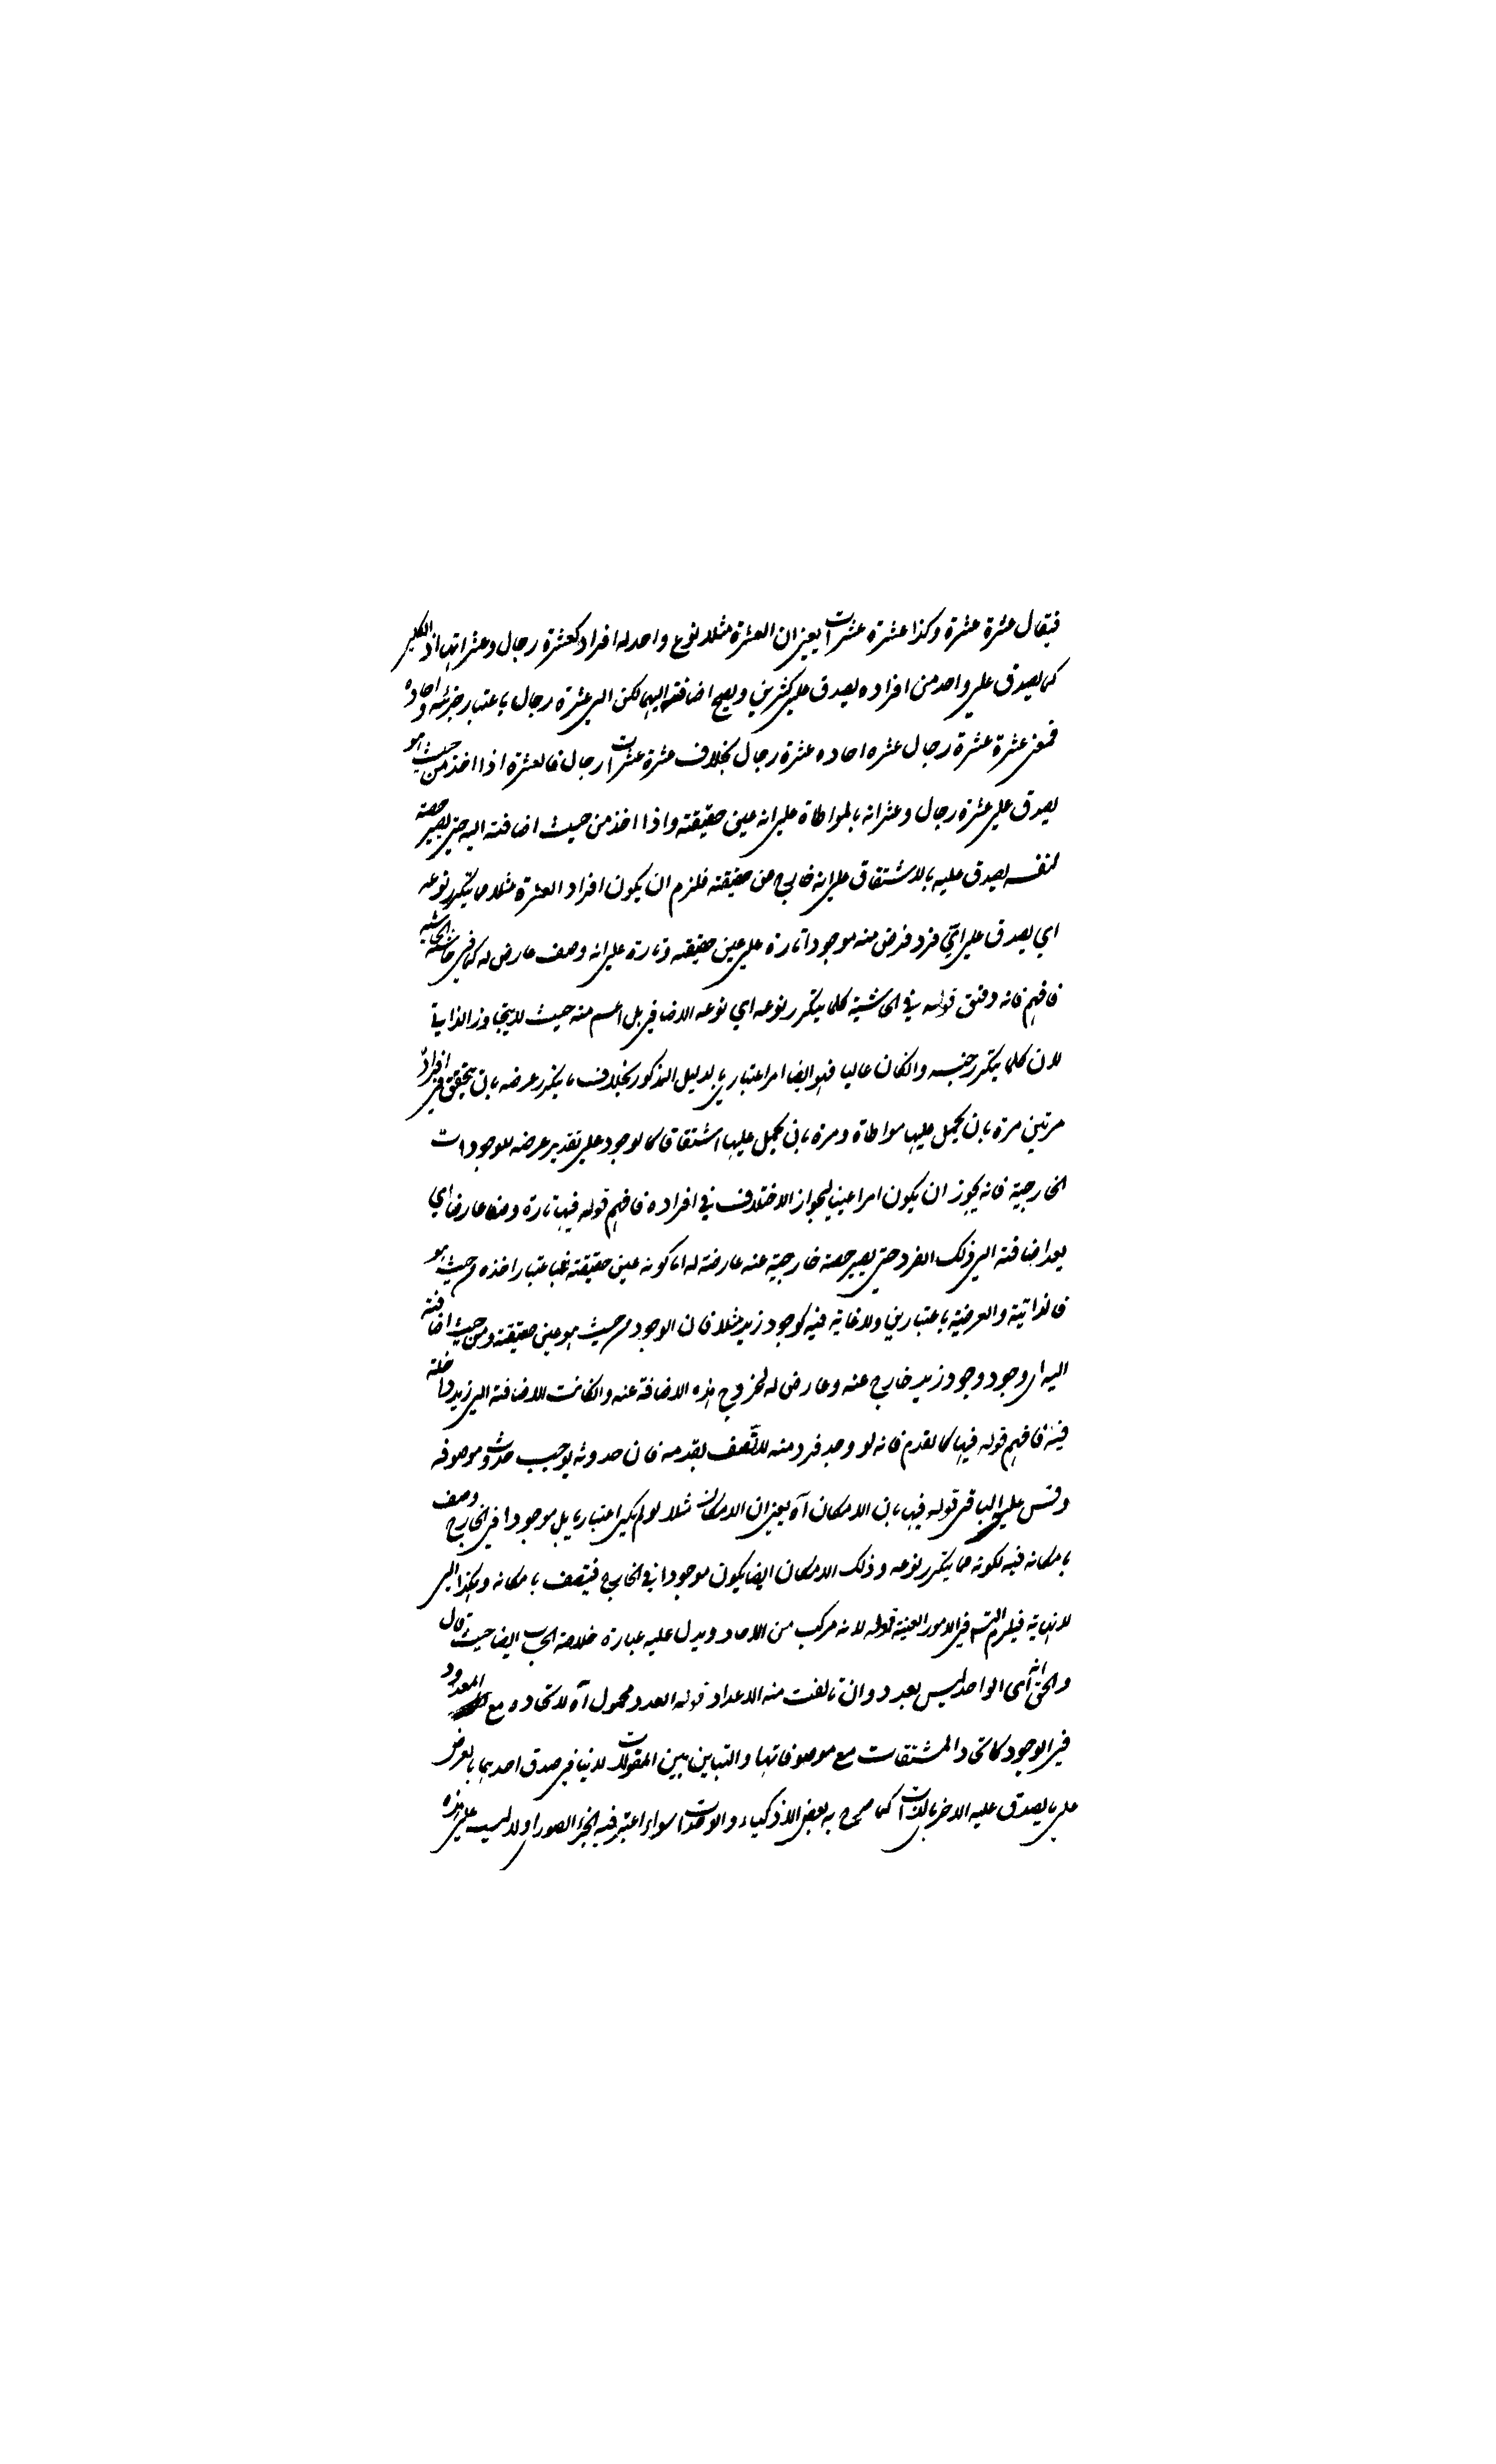 فيقال عشرة عشرة وكذا عشرة عشرات يعني ان العشرة مثلا نوع واحد له افراد كعشرة رجال وعشراتها اذ الكلي
كما يصدق على واحد من افراده يصدق على كثيرين ويصح اضافته اليهما لكن الى عشرة رجال باعتبار جزئه واحاده
فمعنى عشرة عشرة رجال عشرة احاده عشرة رجال بخلاف عشرة عشرات رجال فالعشرة اذا اخذ من حيث هو
يصدق على عشرة رجال وعشراته بالمواطاة على انه عين حقيقته واذا اخذ من حيث اضافته اليه حتى يصير حصة
لنفسه يصدق عليه بالاشتقاق على انه خارج من حقيقته فلزم ان يكون افراد العشرة مثلا مما يتكرر نوعه
اي يصدق على اي فرد فرض منه موجودا تارة على عين حقيقته وتارة على انه وصف عارض له كما في الحاشية
فافهم فانه دقيق قوله في الحاشية كلما يتكرر نوعه اي نوعه الاضافي بل اعم منه حيث لا يتجاوز الذاتيات
لان كلما يتكرر جنسه وان كان عاليا فهو ايضا امر اعتباري بالدليل المذكور بخلاف ما يتكرر عرضه بان يتحقق في افراده
مرتين مرة بان يحمل عليها مواطاة ومرة بان يحمل عليها اشتقاقا كالوجود على تقدير عرضه للموجودات
الخارجية فانه يجوز ان يكون امرا عينيا لجواز الاختلاف في افراده فافهم قوله فيها تارة وصفا عارضا اي
بعد اضافته الى ذلك الفرد حتى يصير حصة خارجية عنه عارضة له اما كونه عين حقيقته فباعتبار اخذه من حيث هو
فالذاتية والعرضية باعتبارين ولا خفاء فيه كوجود زيد مثلا فان الوجود من حيث هو عين حقيقته ومن حيث اضافته
اليه اي وجود وجود زيد خارج عنه وعارض له لخروج هذه الاضافة عنه وان كانت الاضافة الى زيد داخلة
فيه فافهم قوله فيها كالقدم فانه لو وجد فرد منه لاتصف بقدمه فان حدوثه يوجب حدوث موصوفه
وقس على الباقي قوله فيها بان الامكان آه يعني ان الامكان مثلا لو لم يكن اعتباريا بل موجودا في الخارج وصف
بامكانه فيه لكونه مما يتكرر نوعه وذلك الامكان ايضا يكون موجودا في الخارج فيتصف بامكانه وهكذا الى
لا نهاية فيلزم التسلسل في الامور العينية قوله لانه مركب من الاحاد ويدل عليه عبارة خلاصة الحساب ايضا حيث قال
والحق انه اي الواحد ليس بعدد وان تالفت منه الاعداد قوله العدد محمول آه لاتحاده مع المعدود
في الوجود كاتحاد المشتقات مع موصوفاتها والتباين بين المقولات لا ينافي صدق احديهما بالعرض
على ما يصدق عليه الاخر بالذات كما صرح به بعض الاذكياء والوحدات سواء اعتبر فيه الجزء الصوري او لا ليست على هذه